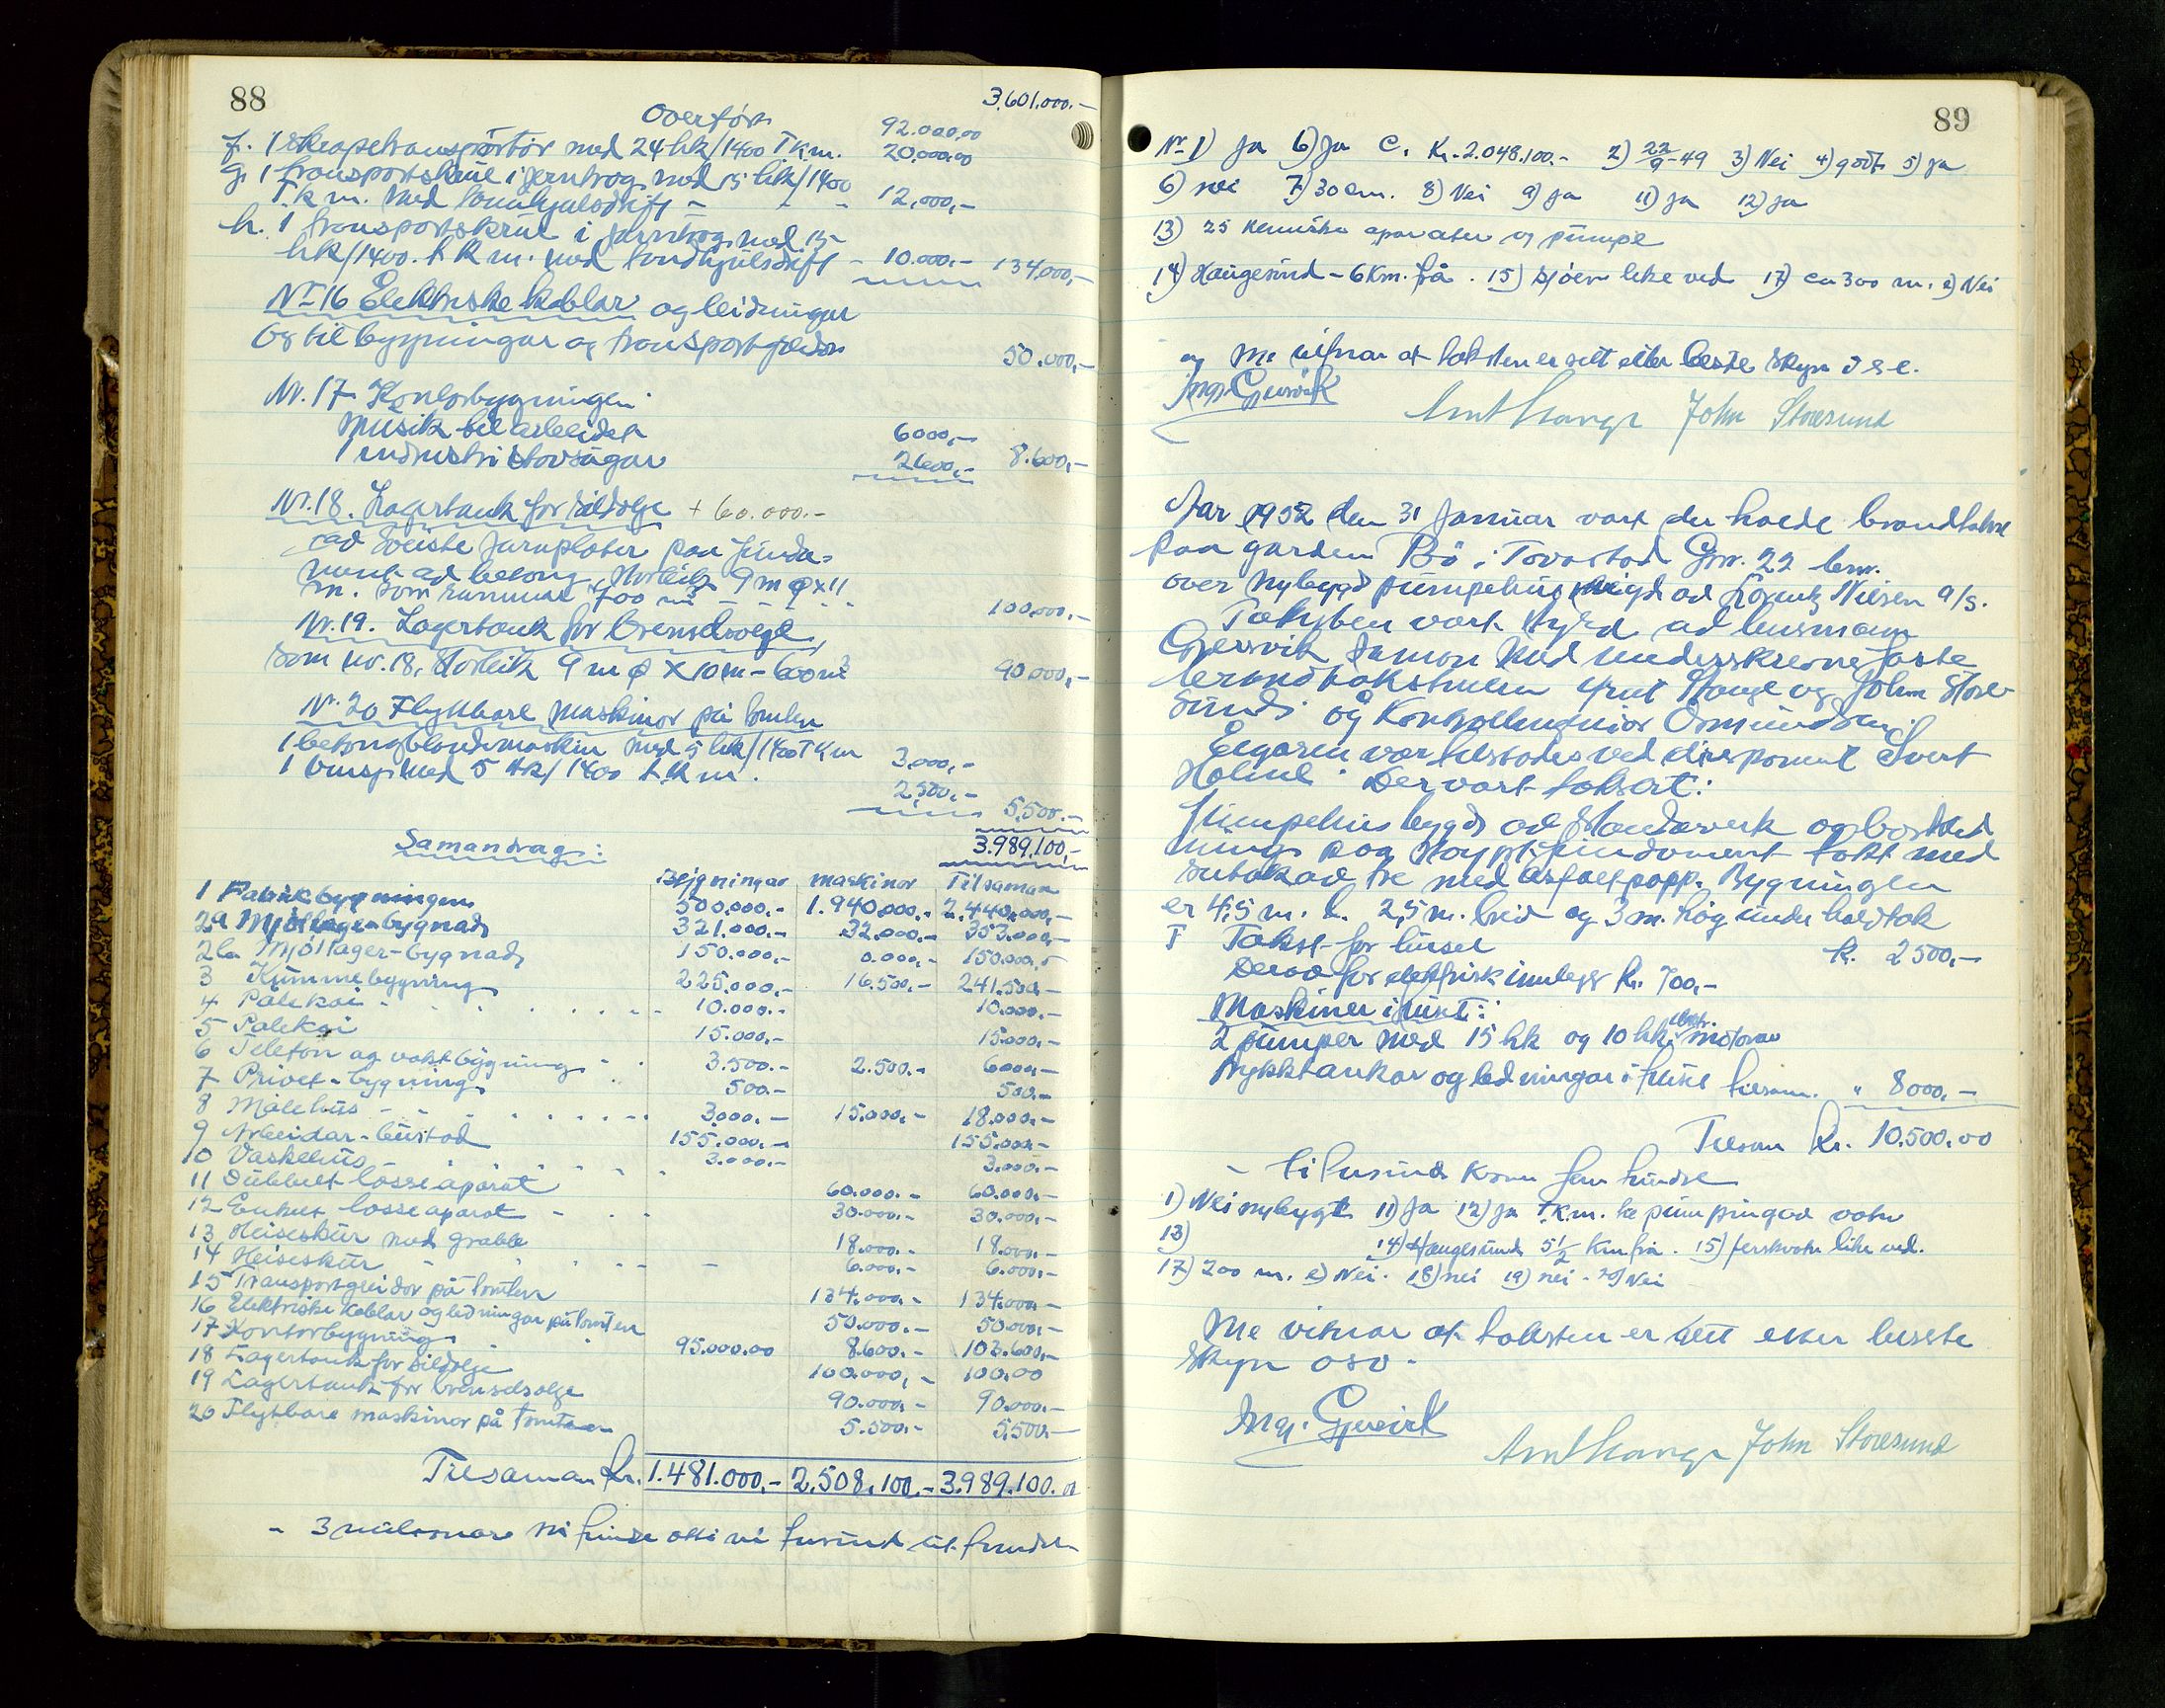 88
Overført 3.601.000.-
92.000,00
f. 1 skrapetransportør med 24 hk/1400 T k.m. 20.000,00
g. 1 transportskrue i jerntrog med 15 hk/1400
T.k m. med tannhjulsdrift - - - 12,000,-
h. 1 transportskrue i jarntrog med 15
hk/1400. t k m. med tandhjulsdrift - 10.000,- 134,000,-
Nr 16 Elektriske kablar og leidningar
og til bygningar og transport 50.000,-
Nr. 17 Kontorbygningen.
Musik til arbeidet 6000,-
1 industri støvsugar 2600,- 8.600,-
Nr. 18. Lagertank for sildolje + 60.000.-
ad sveiste jarnplater paa funda-
ment ad betong, storleik 9 m φ x 11
m. som rummar 700 m³ - - - 100,000,-
Nr. 19. Lagertank for brenselsolje,
som nr. 18, storleik 9 m φ x 10 m - 600 m³ 90,000,-
Nr. 20 Flyttbare maskinor på tomten
1 betongblandemaskin med 5 hk/1400 T k m 3.000,-
1 vinsj med 5 Hk/1400 t.k m. 2,500,- 5,500.-
3.989,100,-
Samandrag:
Bygningar maskinor Tilsaman
1 Fabrikbygningen 500,000.- 1.940,000,- 2,440,000,-
2a Mjøllager-bygnad 321.000.- 32.000.- 353.000,-
2b Mjøllager-bygnad 150.000,- 0.000,- 150.000,-
3 Kummebygning 225,000,- 16.500.- 241.500,-
4 Pålekai 10.000.- 10.000.-
5 Pålekai 15.000,- 15.000,-
6 Telefon og vaktbygning 3.500.- 2.500.- 6000,-
7 Privet-bygning 500.- 500,-
8 Målehus 3,000.- 15.000,- 18.000.-
9 Arbeidar-bustad 155.000.- 155.000.-
10 Vaskehus 3.000.- 3.000.-
11 Dubbelt losseaparat 60.000.- 60.000.-
12 Enkelt losseaparat 30.000.- 30.000.-
13 Heiseskur med grabb 18.000.- 18.000.-
14 Heiseskur 6.000.- 6.000.-
15 Transportgreidor på tomten 134.000.- 134.000.-
16 Elektriske kablar og ledningar på tomten 50.000.- 50.000.-
17 Kontorbygning 95.000.00 8.600.- 103.600,-
18 Lagertank for sildolje 100.000,- 100,00
19 Lagertank for brenselsolje 90.000.- 90.000.-
20 Flyttbare maskinor på tomten 5.500.- 5,500.-
Tilsaman kr. 1.481.000.- 2.508,100.- 3.989.100.00
- 3 milionar ni hundre otti ni tusund eit hundre
89
Nr 1) Ja 6) Ja C. Kr. 2.048.100.- 2) 22/9-49 3) Nei 4) godt 5) ja
6) nei 7) 30 cm. 8) Nei 9) ja 11) ja 12) ja
13) 25 kemiske aparater og pumpe
14) Haugesund - 6 Km. frå. 15) sjøen like ved 17) ca 300 m. e) Nei
og Me vitnar at taksten er sett etter beste skyn o s v.
Ingv. Gjersvik
Amt Hauge John Storesund
Aar 1952 den 31 Januar vart der halde brandtakst
paa garden Bø i Torvastad Gnr. 22 bnr.
over nybygd pumpehus eigd ad Lorentz Nilsen a/s.
Takyben vart styrd ad lensmann
Gjersvik saman med underskrevne faste
brandtakstmenn Amt Hauge og John Store-
sund og Kontrollingeniør Osmundsen.
Eigaren var tilstades ved disponent Sivert
Holme. Der vart taksert:
Pumpehus bygd ad standarverk og bordklæd
ning paa støypt fundament tekt med
sutak ad tre med asfaltpapp. Bygningen
er 4,5 m. l. 2,5 m. breid og 3 m. høg under halvtak
I Takst for huset kr. 2500,-
Derav for elektrisk innlegg kr. 700,-
Maskiner i huset:
2 pumper med 15 hk og 10 hk. elektr. motorar
trykktankar og ledningar i huset tilsam. " 8000,-
Tilsam Kr. 10.500.00
- Ti tusund kroner fem hundre
1) Nei nybygt 11) Ja 12) Ja t.k.m. te pumpingad vatn
13) 14) Haugesund 5 1/2 Km frå. 15) ferskvatn like ved.
17) 200 m. e) Nei. 18) nei 19) nei - 20) Nei
Me vitnar at taksten er sett etter beste
skyn osv.
Ingv. Gjersvik
Amt Hauge John Storesund